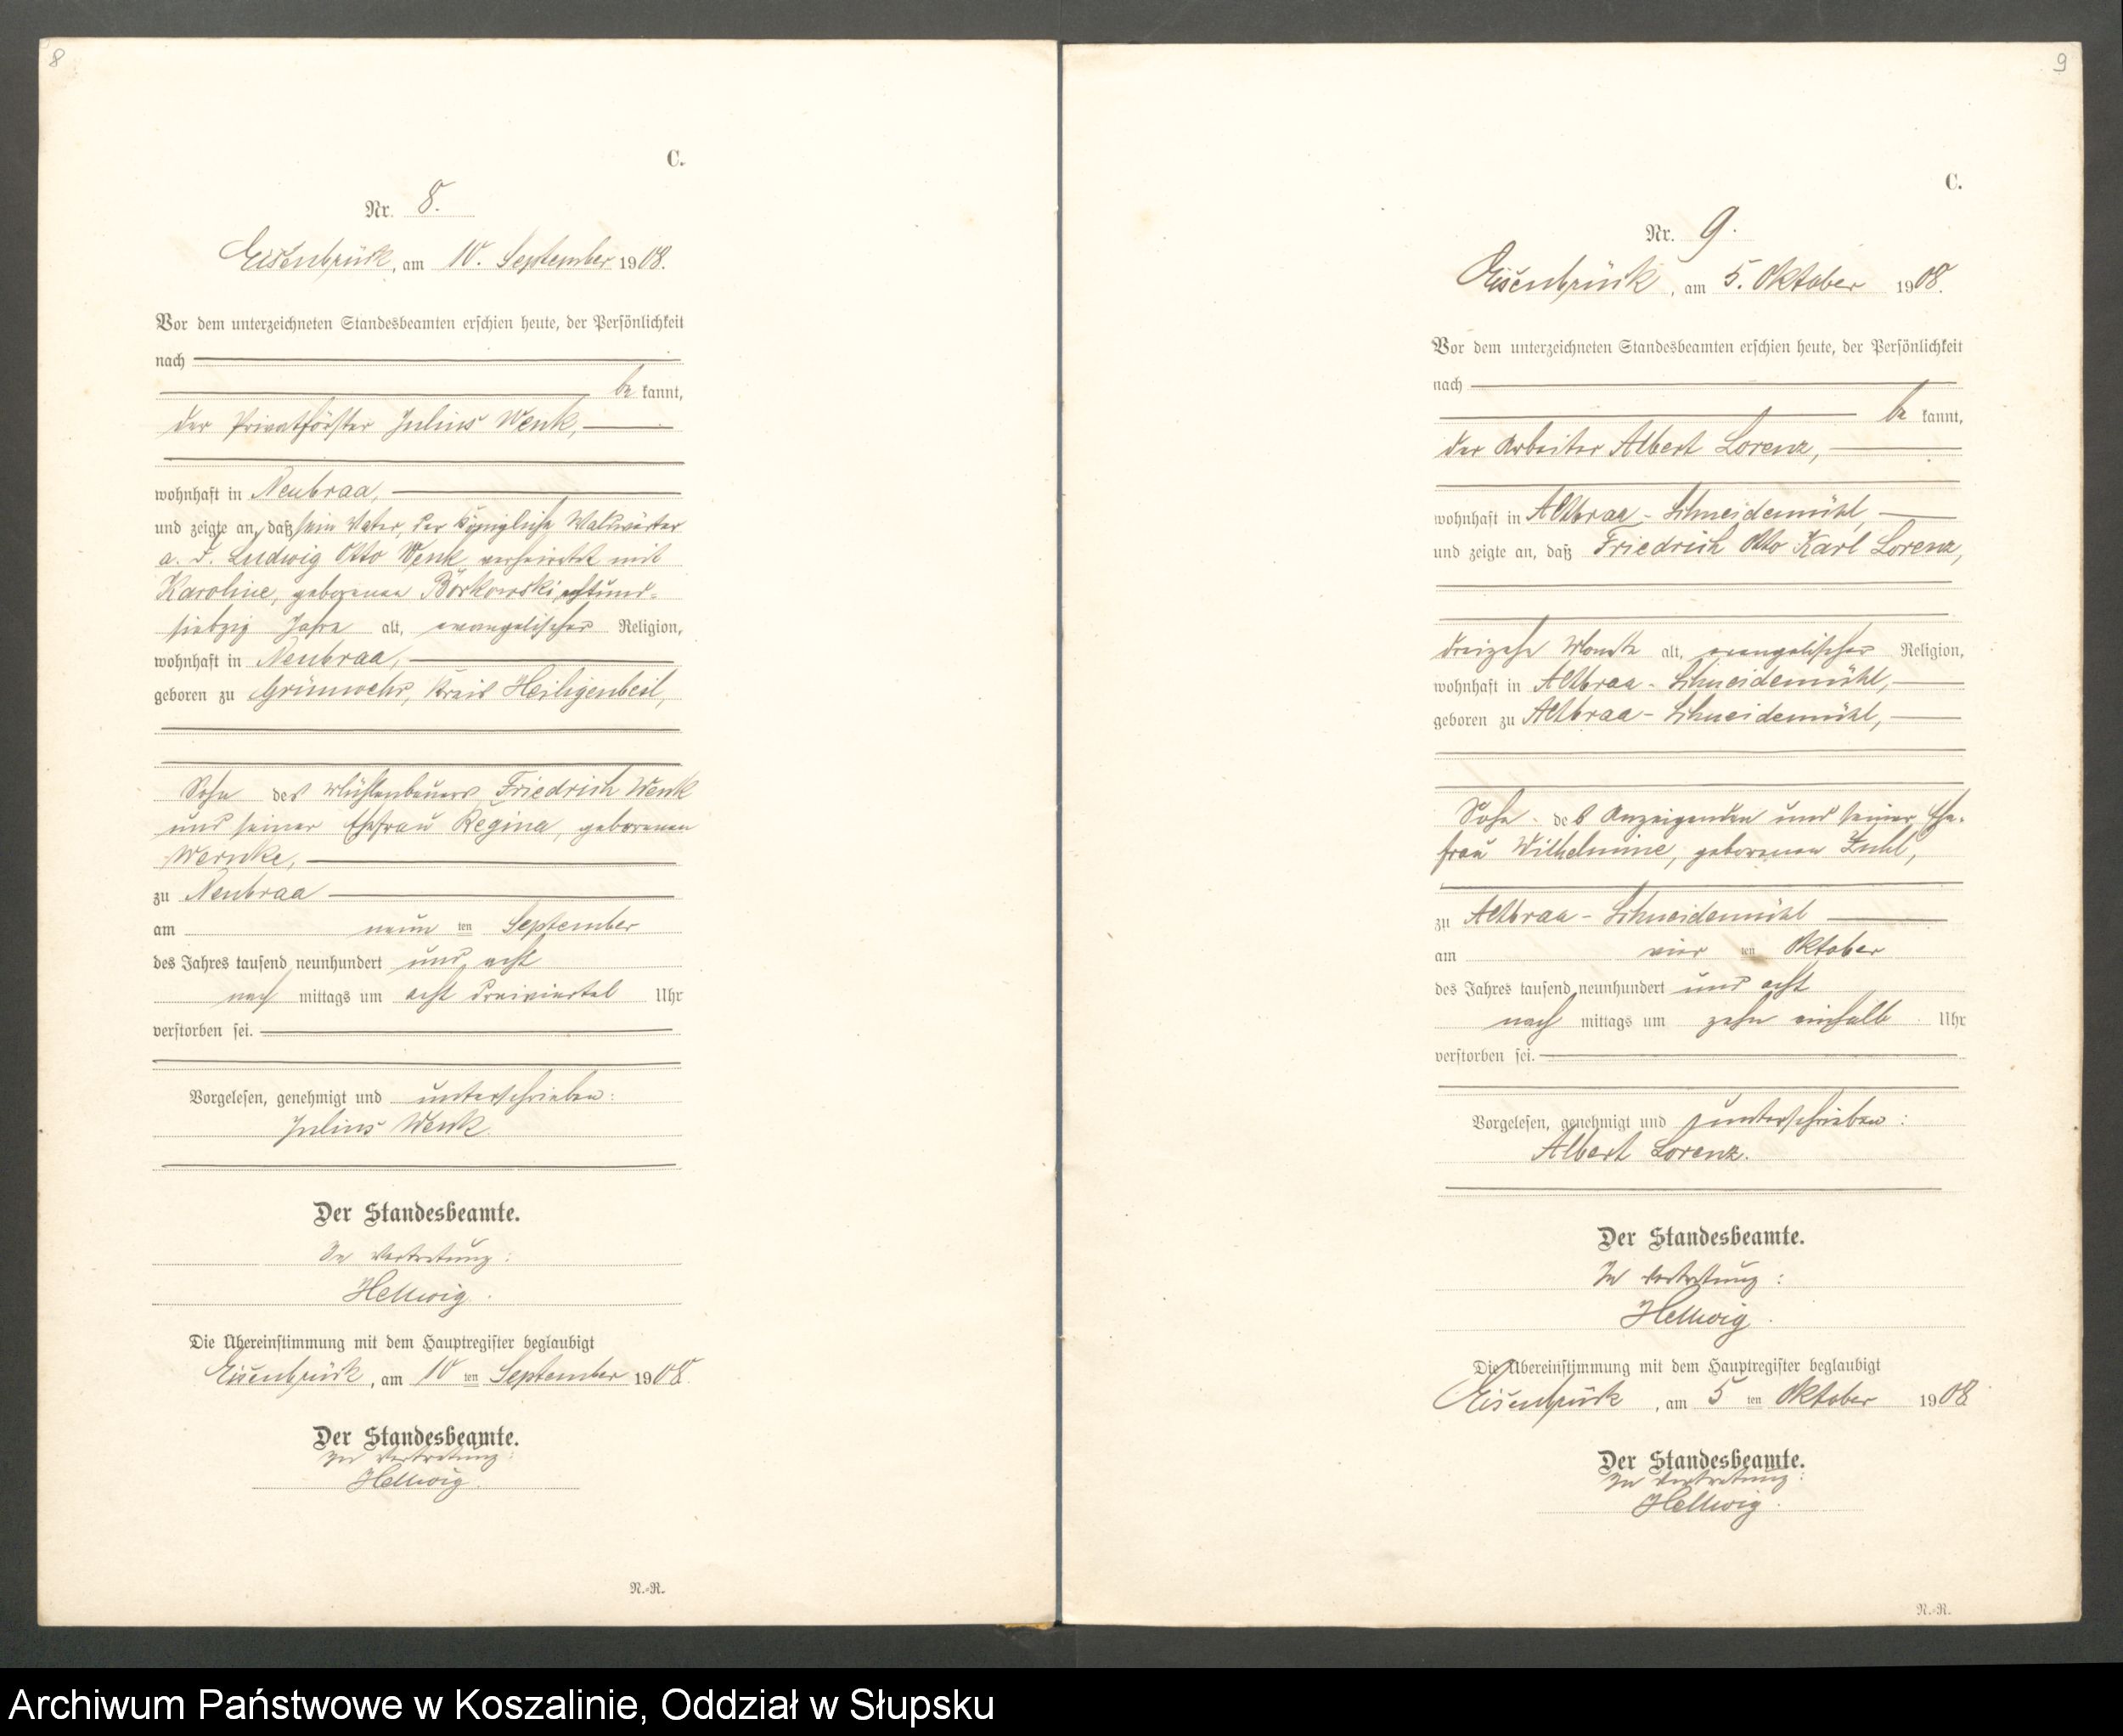 8
C.
Nr. 8.
Eisenbrück, am 10. September 1908.
Vor dem unterzeichneten Standesbeamten erschien heute, der Persönlichkeit
nach
be kannt,
der Privatförster Julius Wenk,
wohnhaft in Neubraa,
und zeigte an, daß sein Vater, der Königliche Waldwärter
a. D. Ludwig Otto Wenk verheiratet mit
Karoline, geborenen Borkowski, achtund-
siebzig Jahre alt, evangelischer Religion,
wohnhaft in Neubraa,
geboren zu Grünwehr, Kreis Heiligenbeil,
Sohn des Mühlenbauers Friedrich Wenk
und seiner Ehefrau Regina, geborenen
Wernke,
zu Neubraa
am neun ten September
des Jahres tausend neunhundert und acht
nach mittags um acht dreiviertel Uhr
verstorben sei.
Vorgelesen, genehmigt und unterschrieben:
Julius Wenk.
Der Standesbeamte.
In Vertretung:
Hellwig.
Die Übereinstimmung mit dem Hauptregister beglaubigt
Eisenbrück, am 10 ten September 1908.
Der Standesbeamte.
In Vertretung:
Hellwig.
N.=R.
9
C.
Nr. 9.
Eisenbrück, am 5. Oktober 1908.
Vor dem unterzeichneten Standesbeamten erschien heute, der Persönlichkeit
nach
be kannt,
der Arbeiter Albert Lorenz,
wohnhaft in Altbraa - Schneidemühl,
und zeigte an, daß Friedrich Otto Karl Lorenz,
dreizehn Monate alt, evangelischer Religion,
wohnhaft in Altbraa - Schneidemühl,
geboren zu Altbraa - Schneidemühl,
Sohn des Anzeigenden und seiner Ehe-
frau Wilhelmine, geborenen Zuhl,
zu Altbraa - Schneidemühl
am vier ten Oktober
des Jahres tausend neunhundert und acht
nach mittags um zehn einhalb Uhr
verstorben sei.
Vorgelesen, genehmigt und unterschrieben:
Albert Lorenz.
Der Standesbeamte.
In Vertretung:
Hellwig.
Die Übereinstimmung mit dem Hauptregister beglaubigt
Eisenbrück, am 5 ten Oktober 1908
Der Standesbeamte.
In Vertretung:
Hellwig.
N.=R.
Archiwum Państwowe w Koszalinie, Oddział w Słupsku